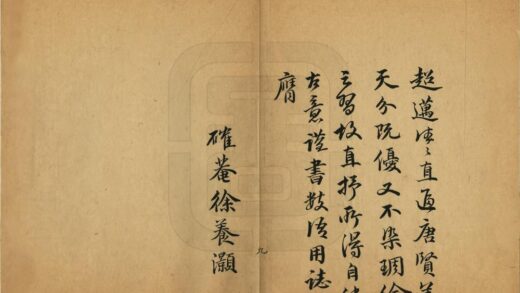 超邁洋洋直逼唐賢蓋
天分既優又不染琱繪
之習故直抒所得自然
古意謹書數語用誌
膺
確菴徐養灝
九